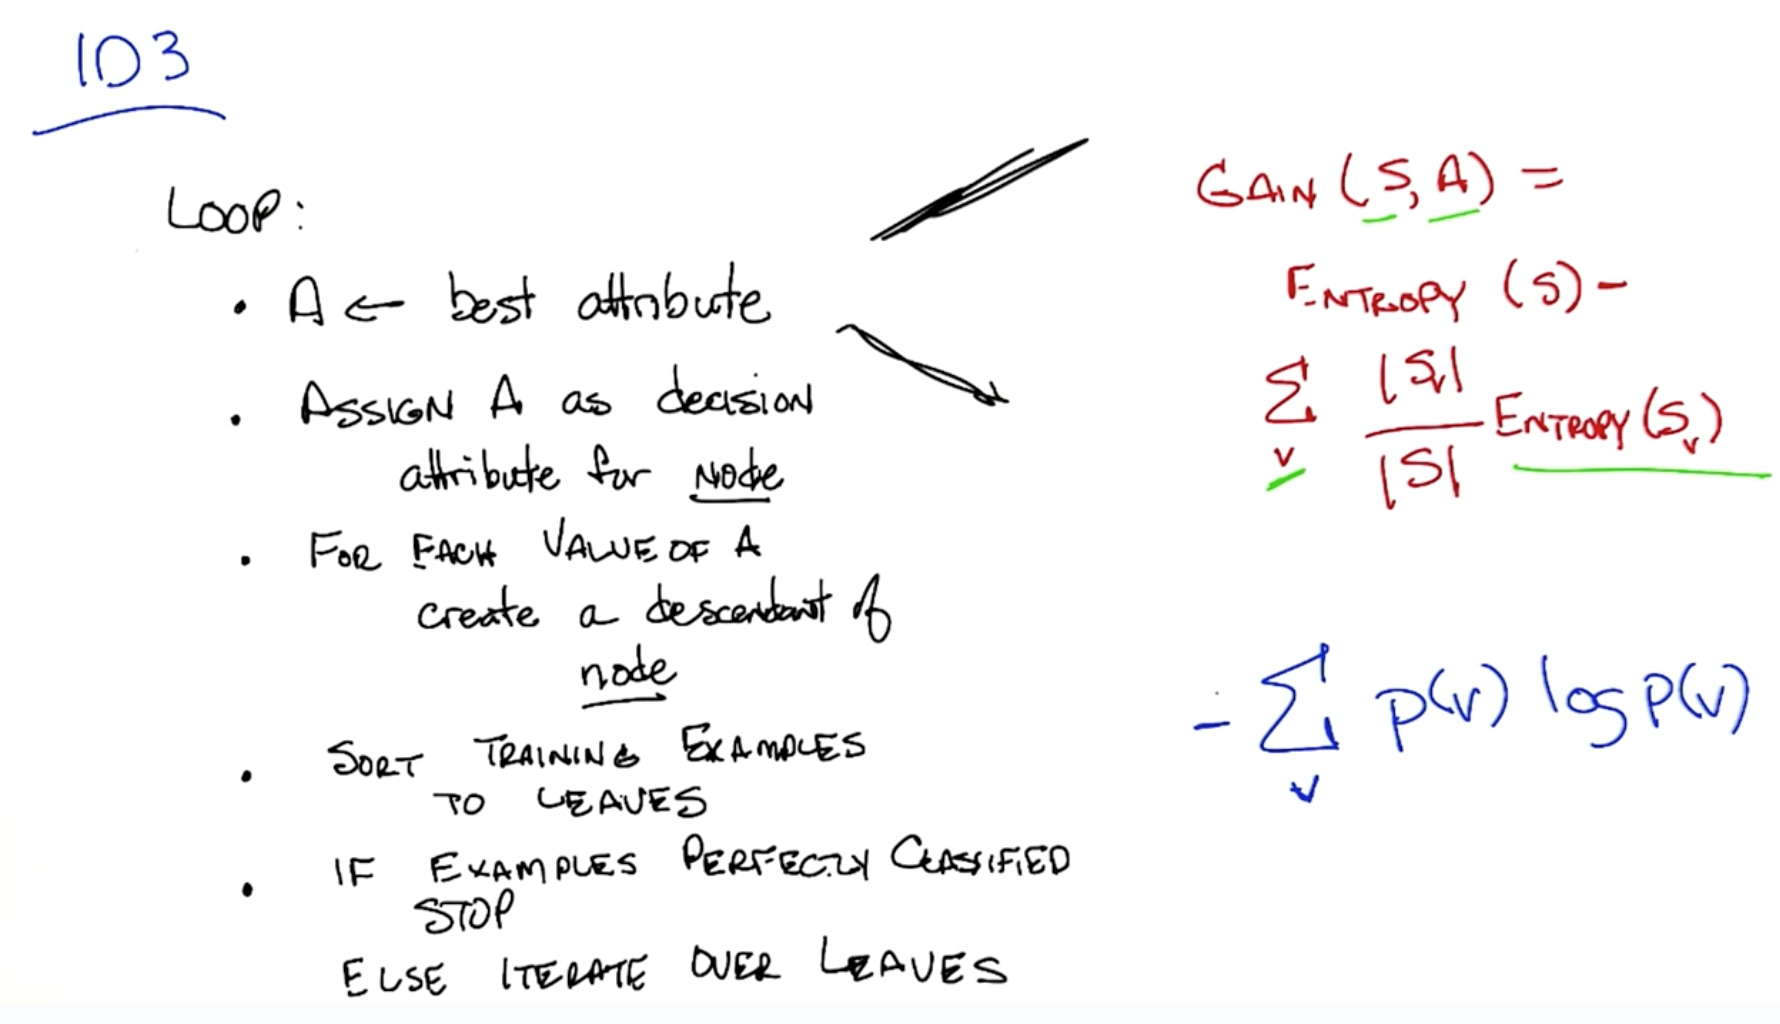 ID3
LOOP:
• A ← best attribute
• ASSIGN A as decision
attribute for NODE
• FOR EACH VALUE OF A
create a descendant of
node
• SORT TRAINING EXAMPLES
TO LEAVES
• IF EXAMPLES PERFECTLY CLASSIFIED
STOP
ELSE ITERATE OVER LEAVES
GAIN (S, A) =
ENTROPY (S) -
Σ_v |S_v| / |S| ENTROPY (S_v)
- Σ_v p(v) log p(v)